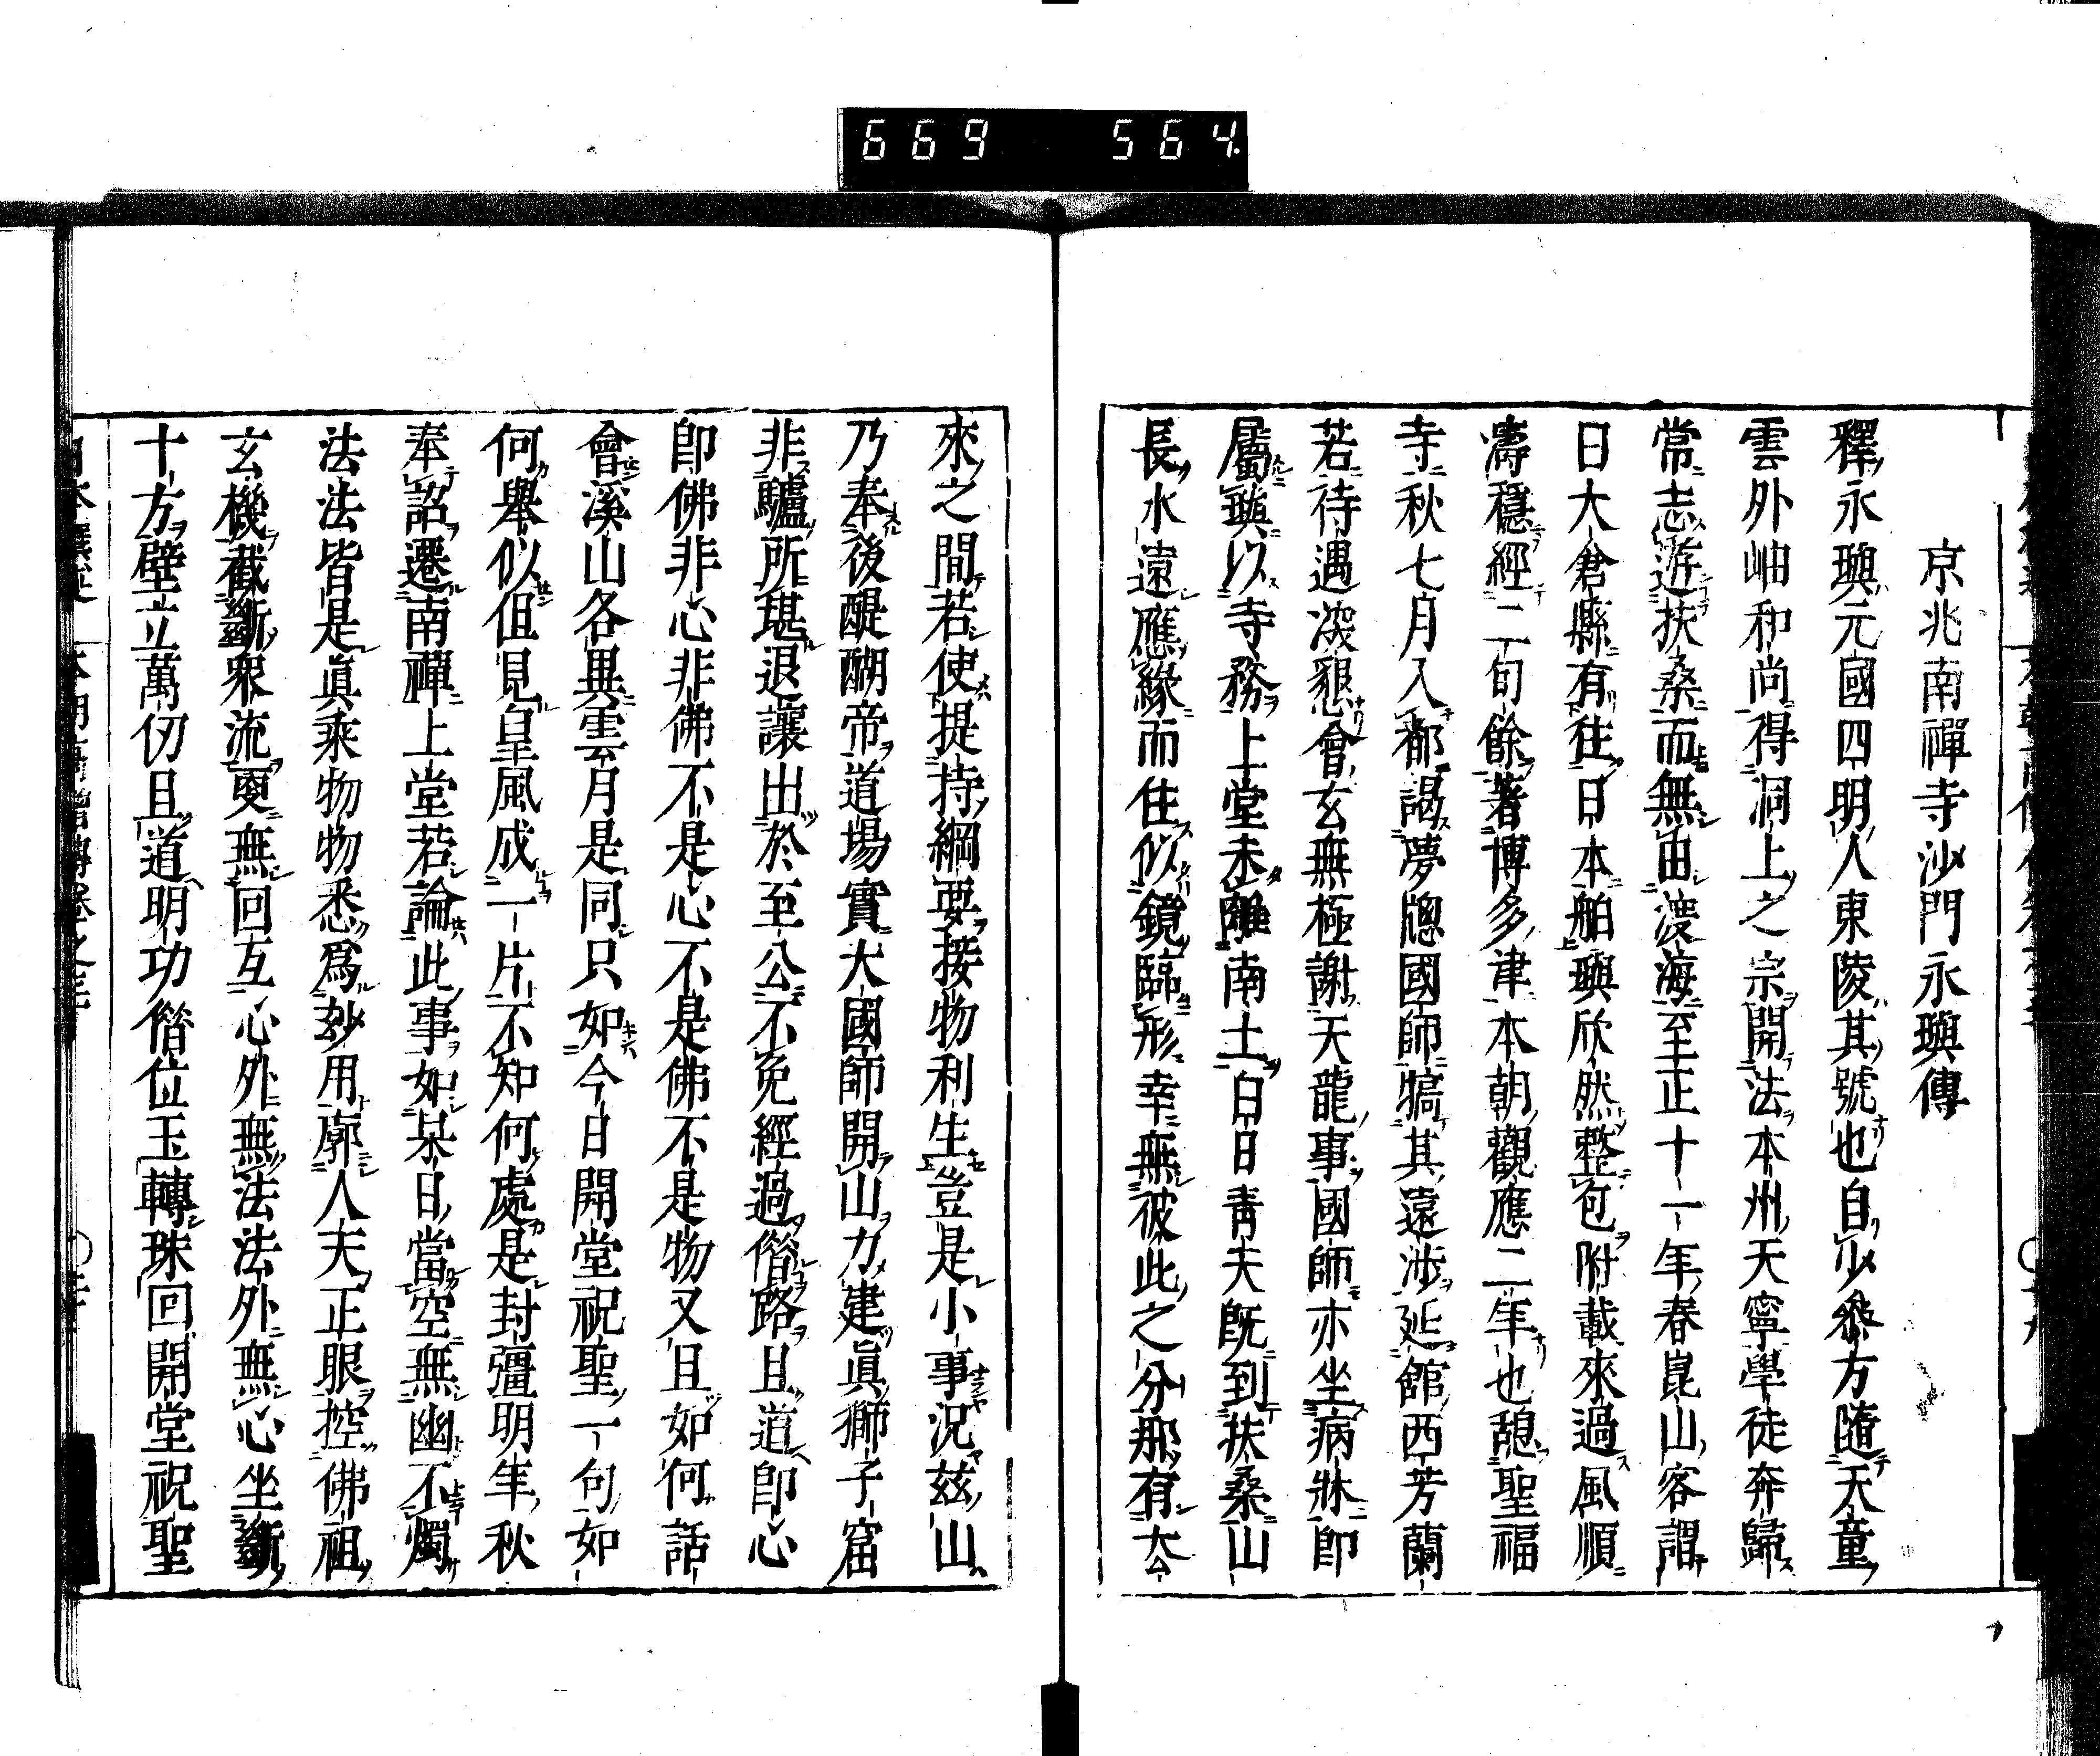 669 564
京兆南禪寺沙門永璵傳
釋永璵元國四明人東陵其號也自少參方隨天童
雲外岫和尚得洞上之宗開法本州天寧學徒奔歸
常志游扶桑而無由渡海至正十一年春崑山客謂
曰大倉縣有往日本舶璵欣然整包附載來過風順
濤穩經二旬餘著博多津本朝觀應二年也憩聖福
寺秋七月入都謁夢窻國師犒其遠涉延館西芳蘭
若待遇深懇會玄無極謝天龍事國師亦坐病牀即
屬璵以寺務上堂未離南土白日青天既到扶桑山
長水遠應緣而住似鏡臨形幸無彼此之分那有去
來之間若使提持綱要接物利生豈是小事況茲山
乃奉後醍醐帝道場實大國師開山力建眞獅子窟
非驢所堪退讓出於至公不免經過僭路且道即心
即佛非心非佛不是心不是佛不是物又且如何話
會溪山各異雲月是同只如今日開堂祝聖一句如
何舉似但見皇風成一片不知何處是封疆明年秋
奉詔遷南禪上堂若論此事如杲日當空無幽不燭
法法皆是眞乘物物悉爲妙用廓人天正眼控佛祖
玄機截斷衆流更無回互心外無法法外無心坐斷
十方壁立萬仞且道明功僭位玉轉珠回開堂祝聖